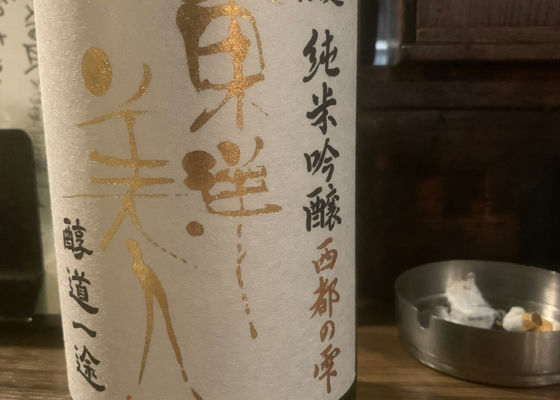 純米吟醸
西都の雫
東洋
美人
醇道一途